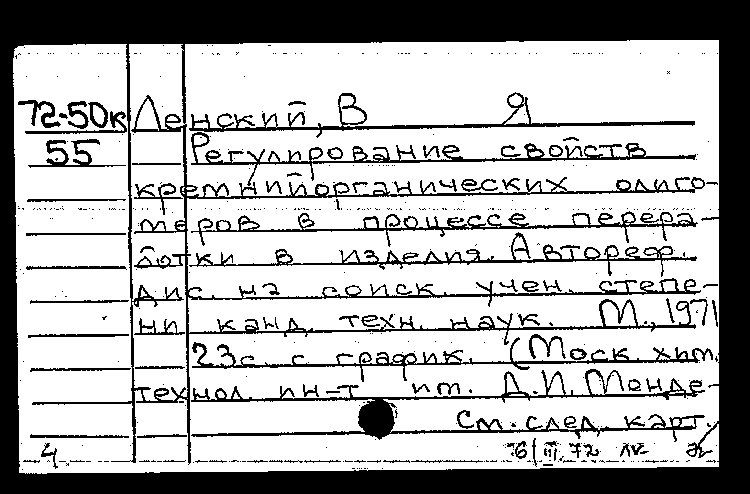 72-50к Ленский, В Я
55 Регулирование свойств
кремнийорганических олиго-
меров в процессе перера-
ботки в изделия. Автореф.
дис. на соиск. учен. степе-
ни канд. техн. наук. М., 1971
23с. с график. (Моск. хим.
технол. ин-т им. Д.И. Менде-
См. след. карт.
4 16/III.72